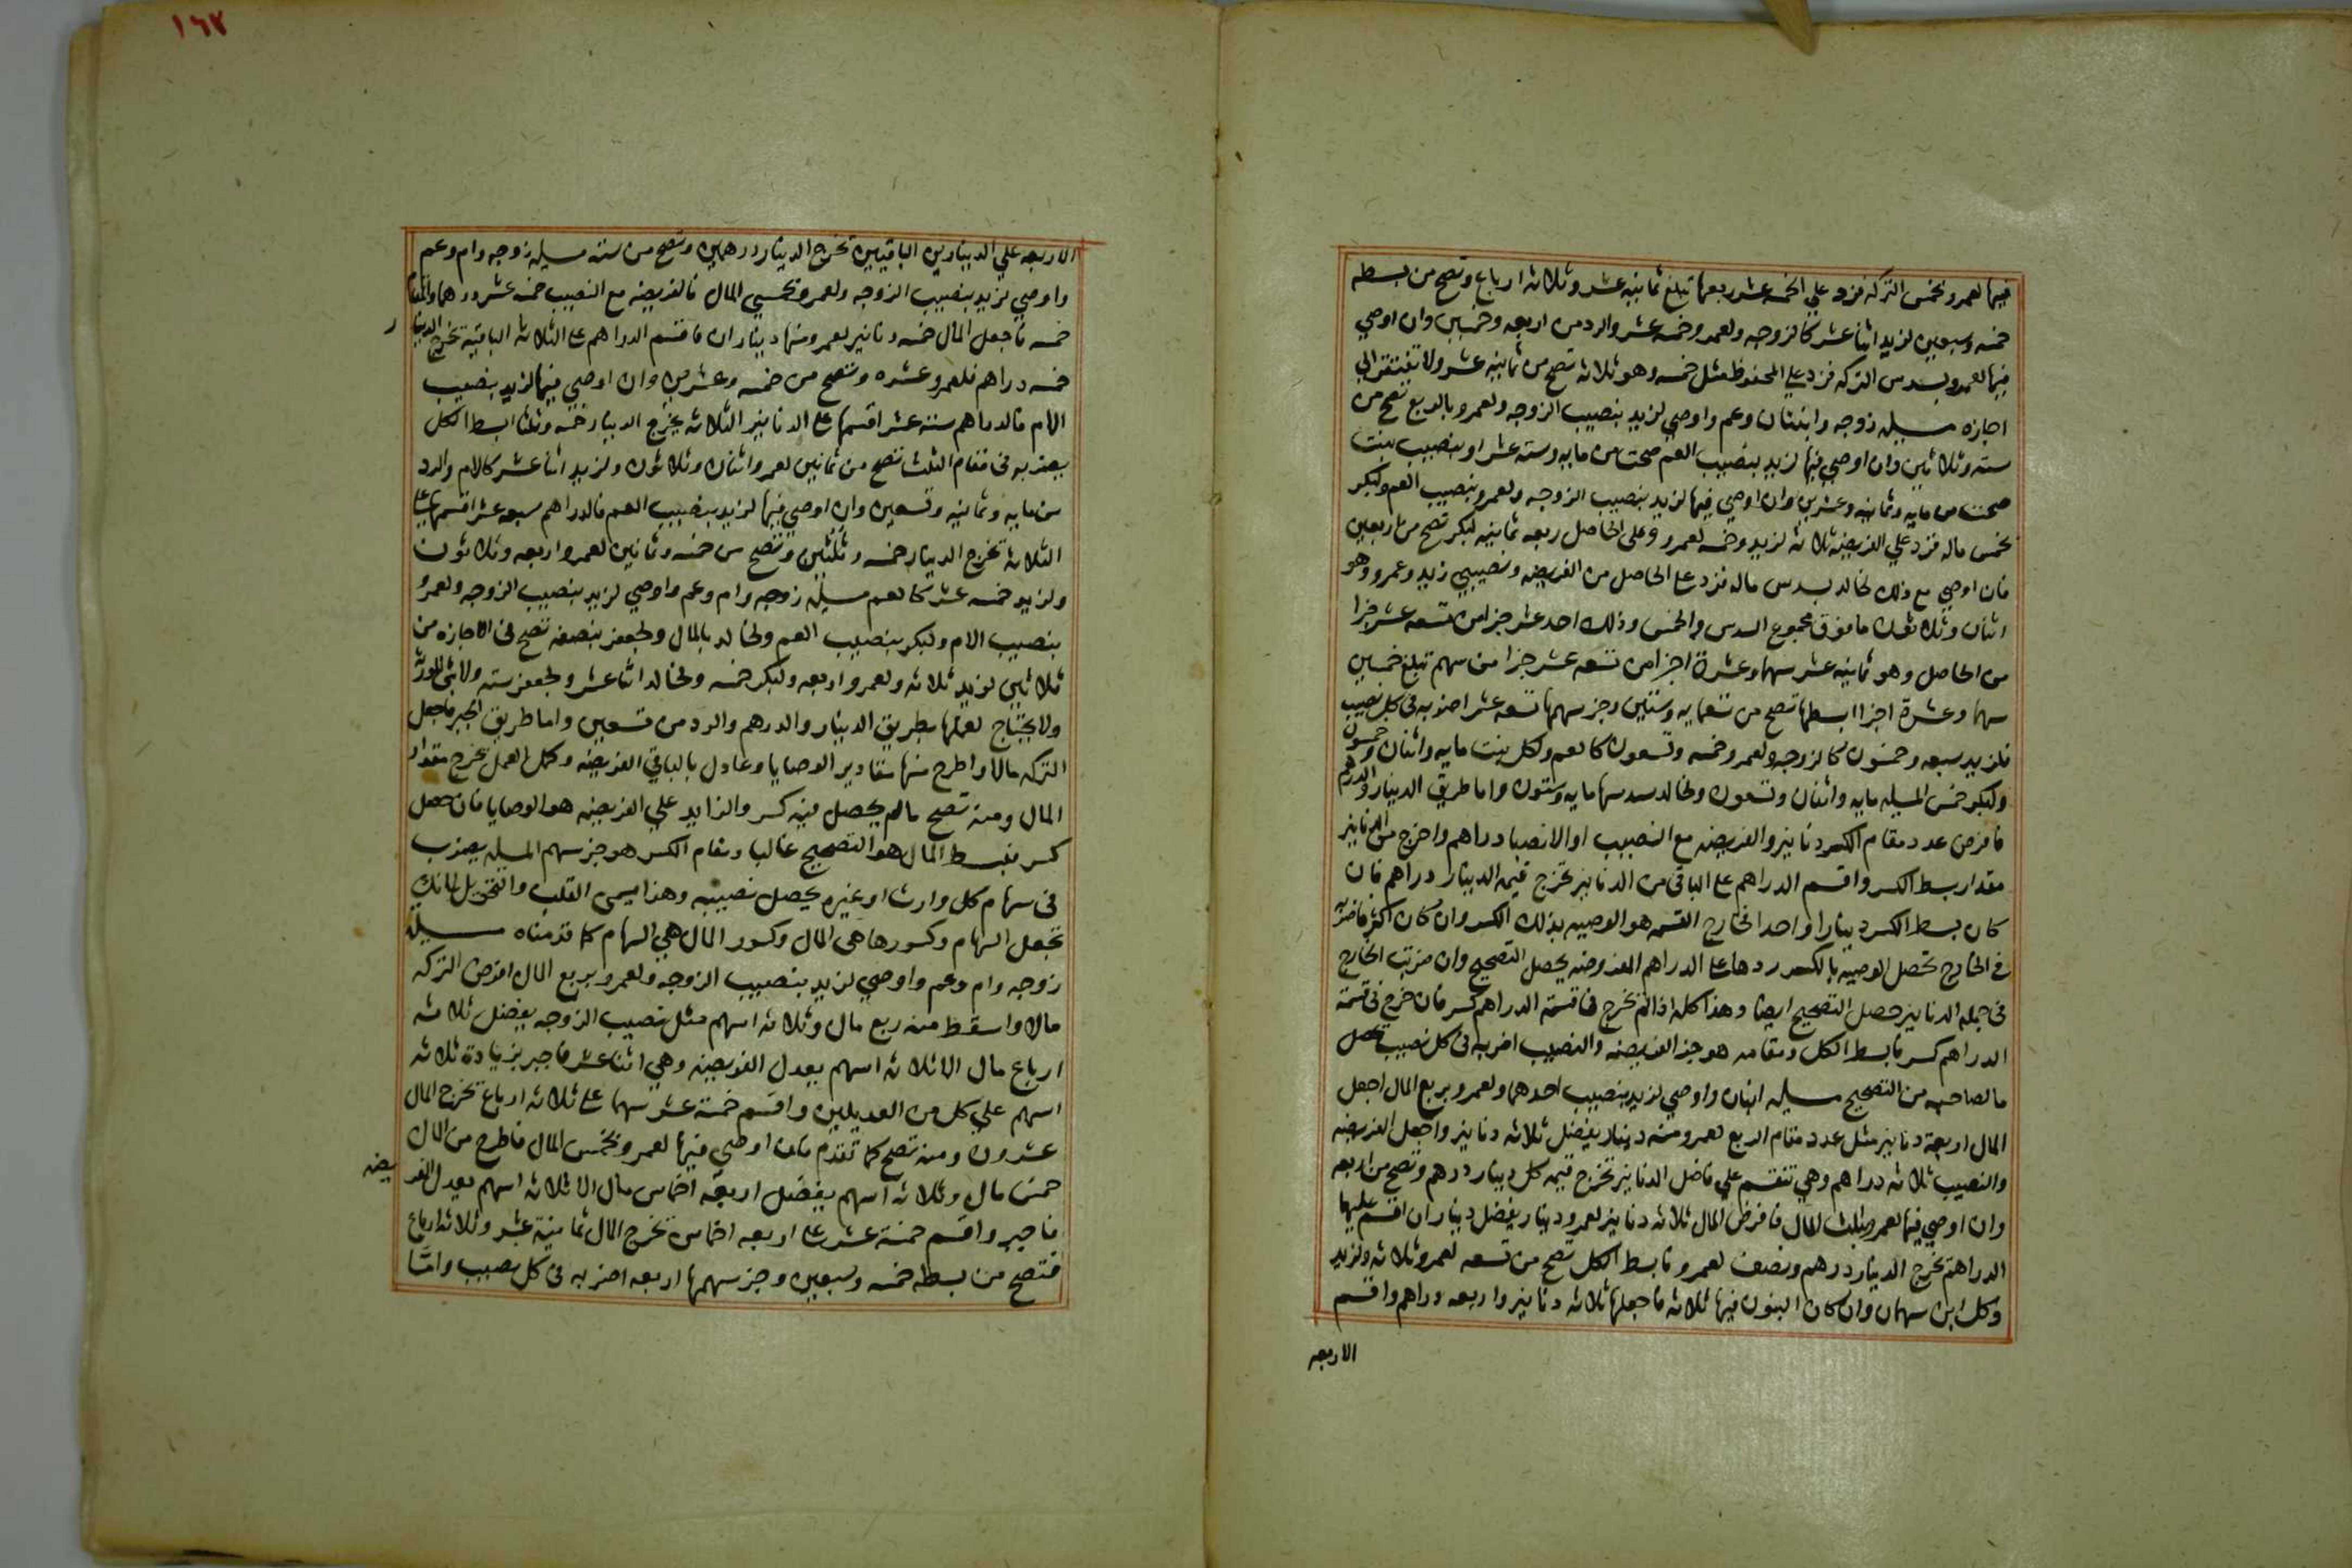 فيها لعمرو بخمس التركه فزد علي الخمسه عشر ربعها تبلغ ثمانيه عشر وثلاثه ارباع وتصح من بسطه
خمسه وسبعين لزيد اثنا عشر كالزوجه ولعمرو خمسه عشر والرد من اربعه وخمسين وان اوصي
فيها لعمرو بسدس التركه فزد علي المحفوظ مثل خمسه وهو ثلاثه تصح من ثمانيه عشر ولا تفتقر الي
اجازه مسيله زوجه وابنتان وعم واوصي لزيد بنصيب الزوجه ولعمرو بالربع تصح من
سته وثلاثين وان اوصي فيها لزيد بنصيب العم صحت من مايه وسته عشر او بنصيب بنت
صحت من مايه وثمانيه وعشرين وان اوصي فيها لزيد بنصيب الزوجه ولعمرو بنصيب العم ولبكر
بخمس ماله فزد علي الفريضه ثلاثه لزيد وخمسه لعمرو وعلى الحاصل ربعه ثمانيه لبكر تصح من اربعين
فان اوصي مع ذلك لخالد بسدس ماله فزد على الحاصل من الفريضه ونصيبي زيد وعمرو وهو
اثنان وثلاثون ما فوق مجموع السدس والخمس وذلك احد عشر جزا من تسعه عشر جزا
من الحاصل وهو ثمانيه عشر سهما وعشرة اجزا من تسعه عشر جزا من سهم تبلغ خمسين
سهما وعشرة اجزا ابسطها تصح من تسعمايه وستين وجز سهمها تسعه عشر اضربه في كل نصيب
فلزيد سبعه وخمسون كالزوجه ولعمرو خمسه وتسعون كالعم ولكل بنت مايه واثنان وخمسون
ولبكر خمس المسيله مايه واثنان وتسعون ولخالد سدسها مايه وستون واما طريق الدينار والدرهم
فافرض عدد مقام الكسر دنانير والفريضه مع النصيب او الانصبا دراهم واخرج من الدنانير
مقدار بسط الكسر واقسم الدراهم على الباقي من الدنانير تخرج قيمه الدينار دراهم فان
كان بسط الكسر دينارا واحدا فخارج القسمه هو الوصيه بذلك الكسر وان كان اكثر فاضربه
في الخارج تحصل الوصيه بالكسر ردها على الدراهم المفروضه يحصل التصحيح وان ضربت الخارج
في جمله الدنانير حصل التصحيح ايضا وهذا كله اذا لم تخرج في قسمة الدراهم كسر فان خرج في قسمة
الدراهم كسر فابسط الكل ومقامه هو جز الفريضه والنصيب اضربه في كل نصيب تحصل
ما لصاحبه من التصحيح مسيله ابنان واوصي لزيد بنصيب احدهما ولعمرو بربع المال اجعل
المال اربعة دنانير مثل عدد مقام الربع لعمرو منه دينار يفضل ثلاثه دنانير واجعل الفريضه
والنصيب ثلاثه دراهم وهي تنقسم علي فاضل الدنانير تخرج قيمه كل دينار درهم وتصح من اربعه
وان اوصي فيها لعمرو بثلث المال فافرض المال ثلاثه دنانير لعمرو دينار يفضل ديناران اقسم عليهما
الدراهم تخرج الدينار درهم ونصف لعمرو فابسط الكل تصح من تسعه لعمرو ثلاثه ولزيد
وكل ابن سهمان وان كان البنون فيها ثلاثه فاجعلها ثلاثه دنانير واربعه دراهم واقسم
الاربعه
١٦٧
الاربعه علي الدينارين الباقيين تخرج الدينار درهمين وتصح من سته مسيله زوجه وام وعم
واوصي لزيد بنصيب الزوجه ولعمرو بخمسي المال فالفريضه مع النصيب خمسه عشر درهما والمقام
خمسه فاجعل المال خمسه دنانير لعمرو منها ديناران فاقسم الدراهم على الثلاثه الباقية تخرج الدينار
خمسه دراهم فلعمرو عشره وتصح من خمسه وعشرين وان اوصي فيها لزيد بنصيب
الام فالدراهم سته عشر اقسمها على الدنانير الثلاثه يخرج الدينار خمسه وثلثا ابسط الكل
بضربه في مقام الثلث تصح من ثمانين لعمرو اثنان وثلاثون ولزيد اثنا عشر كالام والرد
من مايه وثمانيه وتسعين وان اوصي فيها لزيد بنصيب العم فالدراهم سبعه عشر اقسمها على
الثلاثه تخرج الدينار خمسه وثلثين وتصح من خمسه وثمانين لعمرو اربعه وثلاثون
ولزيد خمسه عشر كالعم مسيله زوجه وام وعم واوصي لزيد بنصيب الزوجه ولعمرو
بنصيب الام ولبكر بنصيب العم ولخالد بالمال ولجعفر بنصفه تصح في الاجازه من
ثلاثين لزيد ثلاثه ولعمرو اربعه ولبكر خمسه ولخالد اثنا عشر ولجعفر سته ولا شي للورثه
ولا يحتاج لعملها بطريق الدينار والدرهم والرد من تسعين واما طريق الجبر فاجعل
التركه مالا واطرح منها مقادير الوصايا وعادل بالباقي الفريضه وكمل العمل يخرج مقدار
المال ومنه تصح مالم يحصل فيه كسر والزايد علي الفريضه هو الوصايا فان حصل
كسر فبسط المال هو التصحيح غالبا ومقام الكسر هو جز سهم المسيله يضرب
في سهام كل وارث او غيره يحصل نصيبه وهذا يسمى القلب والتحويل لانك
تجعل السهام وكسورها هي المال وكسور المال هي السهام كما قدمناه مسيله
زوجه وام وعم واوصي لزيد بنصيب الزوجه ولعمرو بربع المال افرض التركه
مالا واسقط منه ربع مال وثلاثه اسهم مثل نصيب الزوجه يفضل ثلاثه
ارباع مال الا ثلاثه اسهم يعدل الفريضه وهي اثنا عشر فاجبر بزيادة ثلاثه
اسهم علي كل من العديلين واقسم خمسة عشر سهما على ثلاثه ارباع تخرج المال
عشرون ومنه تصح كما تقدم فان اوصي فيها لعمرو بخمس المال فاطرح من المال
خمس مال وثلاثه اسهم يفضل اربعه اخماس مال الا ثلاثه اسهم يعدل الفريضه
فاجبر واقسم خمسة عشر على اربعه اخماس تخرج المال ثمانية عشر وثلاثه ارباع
فتصح من بسطه خمسه وسبعين وجز سهمها اربعه اضربه في كل نصيب وامّا